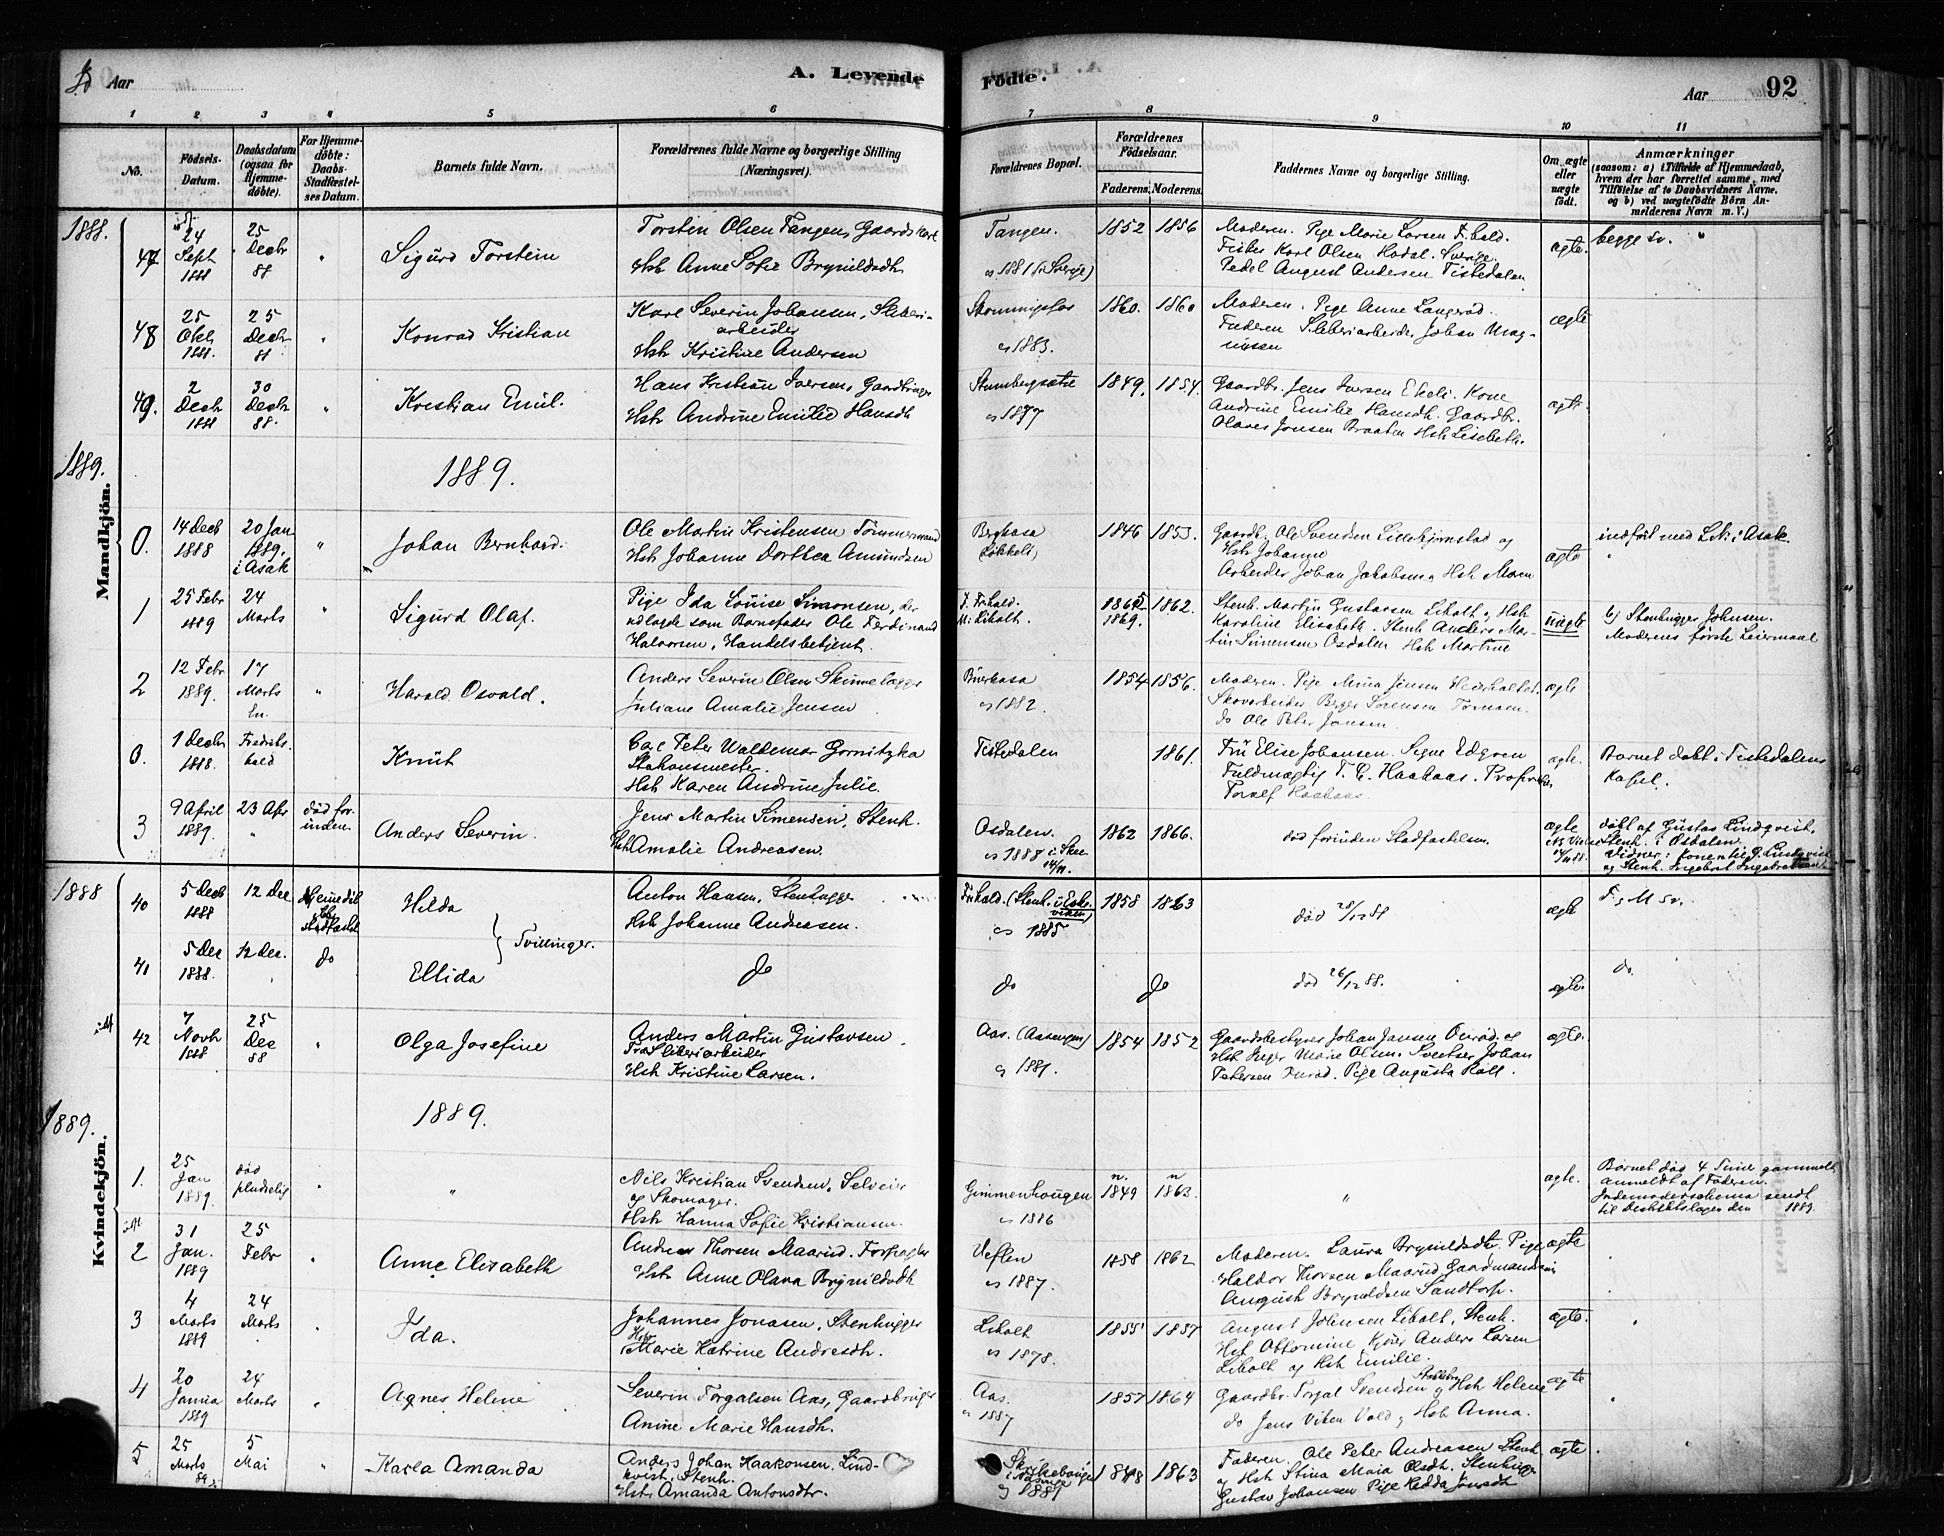 Aar
A. Levende
Födte.
Aar
92
1 2 3 4 5 6 7 8 9 10 11
No.
Födsels-
Datum.
Daabsdatum
(ogsaa for
Hjemme-
döbte).
For Hjemme-
döbte:
Daabs-
Stadfæstel-
ses Datum.
Barnets fulde Navn.
Forældrenes fulde Navne og borgerlige Stilling
(Næringsvei).
Forældrenes Bopæl.
Forældrenes
Födselsaar.
Faderens. Moderens.
Faddernes Navne og borgerlige Stilling.
Om ægte
eller
uægte
födt.
Anmærkninger
(saasom: a) i Tilfælde af Hjemmedaab,
hvem der har forrettet samme, med
Tilföielse af to Daabsvidners Navne.
og b) ved uægtefödte Börn An-
melderens Navn m. V.)
Mandkjön.
1888.
47
24
Sept
1888
25
Decbr
88
"
Sigurd Torstein
Torstin Olsen Tangen, Gaardskarl
Hst Anne Sofie Brynildsdtr
Tangen.
1881 (i Sverge)
1852 1856
Moderen. Pige Marie Larsen F.hald.
Fisker Karl Olsen Hodal. Sverige.
Pedel August Andersen Tistedalen
ægte.
begge sv. "
48
25
Oktb
1888.
25
Decbr
88
Konrad Kristian
Karl Severin Johansen, Sliberi-
arbeider
Hst Kristine Andersen
1883.
1860. 1860
Moderen. Pige Anne Langerød.
Faderen Sliberiarbeider Johan Mag-
nusen
ægte
49.
2
Decbr
1888
30
Decbr
88.
"
Kristian Emil.
Hans Kristian Iversen, Gaardbruger
Hst Andrine Emilie Hansdt
1877
1849. 1854.
Gaardbr. Jens Iversen Ekeli. Kone
Andrine Emilie Hansdt. Gaardbr.
Olaves Jonsen Braaten Hst Lisebeth.
ægte.
1889.
1889.
0.
14 Decb
1888
20 Jan
1889.
i Asak
"
Johan Bernhard.
Ole Martin Kristensen Tömmermand
Hst Johanne Dorthea Amundsen
Berghasa
(Løkkeli)
1846 1853.
Gaardb. Ole Svendsen Lillekjörnstad og
Hst Johanne
Arbeider Johan Jakobsen og Hst Maren
ægte
indført med Lit. i Asak
"
1
25 Febr
1889
24
Marts
"
Sigurd Olaf.
Pige Ida Louise Simonsen, der
udlagde som Barnefader Ole Ferdinand
Halvorsen, Handelsbetjent.
F. Fr.hald.
M. Libolt.
1865
1869.
1862.
Stenh. Martin Gustavsen Libolt og Hst
Karoline Elisebeth. Stenh Anders Mar-
tin Simensen Osdalen Hst Martine
uægte
b) Stenhugger Johnsen.
Moderens første Leiermaal
2
12 Febr
1889.
17
Marts
"
Harald Osvald.
Anders Severin Olsen Skinnelægger
Juliane Amalie Jensen
1882.
1854 1856.
Moderen. Pige Mina Jensen
Skovarbeider Berger Sørensen
do Ole Peter Jansen.
ægte
0.
1 Decbr
1888.
Fredriks-
hald
Knut
Carl Peter Waldemar Gornitzka
Stationsmester
Hst Karen Andrine Julie.
Tistedalen
1861.
Fru Elise Johansen. Signe Edgren
Fuldmægtig T. C. Haakaas.
Toralf Haakaas
ægte.
Barnet døbt i Tistedalens
Kapel.
3
9 April
1889.
23 Apr
"
død for-
inden.
Anders Severin.
Jens Martin Simensen, Stenh.
Hst Amalie Andreasen.
Osdalen.
1888 i Skee
1862 1866.
død forinden Stadfæstelsen.
ægte
døbt af Gustav Lindqvist,
Stenh. i Osdalen.
Vidner: Konen til G. Lindqvist
og Stenh. Ingebret Ingebretsen
Kvindekjön.
1888
40
5 Decb
1888
12 Dec
Hjemmedöbt
Hilda
Anton Hansen, Stenhugger
Hst Johanne Andreasen.
Fr.hald. (Stenh. i Eske-
viken)
1885
1858 1863
død 28/12 88
ægte
F. & M sv.
41
5 Dec
1888.
12 Dec.
do
Ellida
Tvillinger.
do
do
do
død 26/12 88.
ægte
do.
42
7
Novb
1888
25
Dec
88
Olga Josefine
Anders Martin Gustavsen
Træsliberiarbeider
Hst Kristine Larsen.
Aas. (Aasengen)
1881.
1854 1852
Gaardsbestyrer Johan Jansen og
Hst Inger Marie Olsen. Sveitser Johan
Petersen Pige Augusta Roll.
ægte.
1889.
1889.
1.
25
Jan
1889.
død
pludselig
"
Nils Kristian Svendsen, Selveier
og Skomager.
Hst Hanna Sofie Kristiansen.
Gimmenhaugen
1886
1849 1863.
"
ægte.
Barnet død 4 Timer gammelt
anmeldt af Faderen.
Jordemoderskema sendt
til Distriktslægen den 1889.
2
31
Jan.
1889
25
Febr
Anne Elisabeth
Andreas Thorsen Maarud. Forpagter
Hst. Anne Olava Brynildsdt
Veflen
1887.
1858 1862
Moderen. Laura Brynildsdtr. Pige
Haldor Thorsen Maarud Gaardmandssön
August Brynildsen Sandtorp.
ægte
3
4
Marts
1889
24
Marts
Ida.
Johannes Jonasen, Stenhugger
Hst Marie Katrine Andresdtr.
Libolt
1878.
1855 1857
August Johnsen Libolt, Stenh.
Hst Ottomine Kjöve Anders Larsen
Libolt og Hst Emilie.
ægte.
4
20
Janua
1889
24
Marts
Agnes Helene
Severin Torgalsen Aas, Gaardbruger
Anine Marie Hansdtr.
Aas.
1887
1857 1864
Gaardbr. Torgal Svendsen og Hst Helene
do Jens Viken Vold og Hst Anna.
ægte
5
25
Marts
89
5
Mai
"
Karla Amanda
Anders Johan Haakonsen. Lind-
kvist, Stenh.
Hst. Amanda Antonsdtr.
1889
1848 1863
Faderen. Ole Peter Andreasen Stenh.
og Hst Stina Maia Olsdt. Stenhugger
Gustav Johansen Pige Hedda Jonsdt
ægte